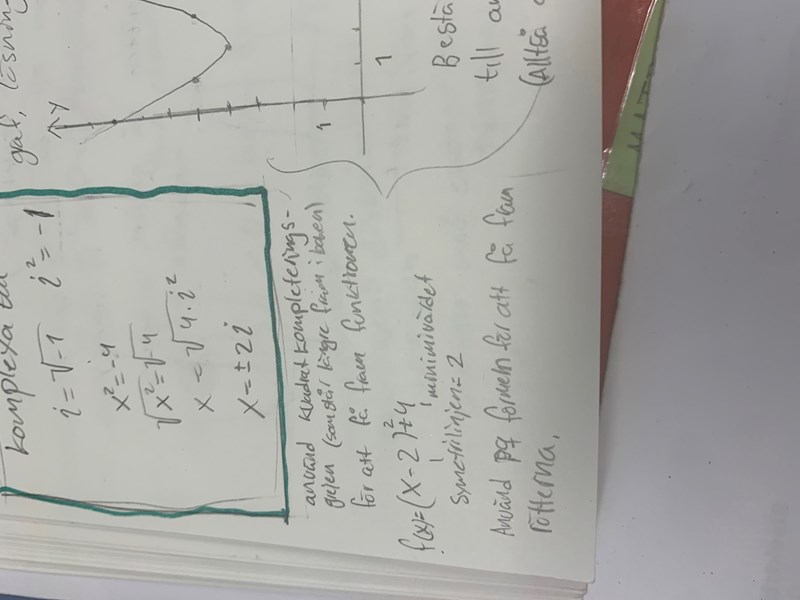 komplexa
i = √-1 i² = -1
x² = -4
√x² = √-4
x = √4·i²
x = ±2i
använd kvadratkompleterings-
grejen (som står längre fram i boken)
för att få fram funktionen.
f(x) = (x-2)² + 4
minimivärdet
Symetrilinjen = 2
Använd pq formeln för att få fram
rötterna.
graf, lösning
y
1
1
Bestä
till
(Alltså